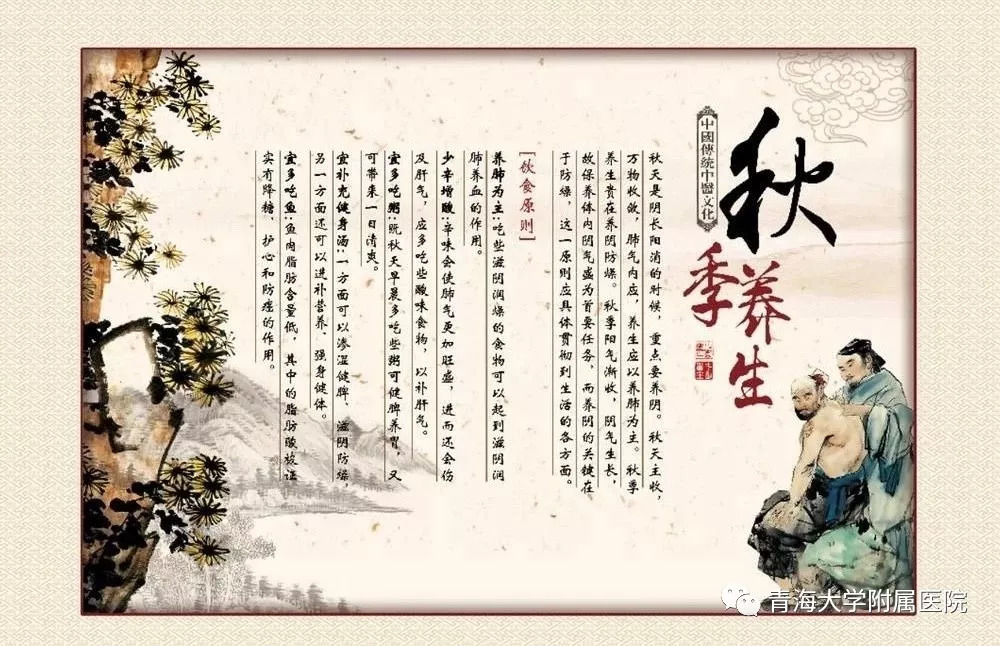 秋季养生
中國傳統中醫文化
秋天是阴长阳消的时候，重点要养阴。秋天主收，
万物收敛，肺气内应，养生应以养肺为主。秋季
养生贵在养阴防燥。秋季阳气渐收，阴气生长，
故保养体内阴气盛为首要任务，而养阴的关键在
于防燥，这一原则应具体贯彻到生活的各方面。
[饮食原则]
养肺为主:吃些滋阴润燥的食物可以起到滋阴润
肺养血的作用。
少辛增酸:辛味会使肺气更加旺盛，进而还会伤
及肝气，应多吃些酸味食物，以补肝气。
宜多吃粥:既秋天早晨多吃些粥可健脾养胃，又
可带来一日清爽。
宜补充健身汤:一方面可以渗湿健脾、滋阴防燥，
另一方面还可以进补营养、强身健体。
宜多吃鱼:鱼肉脂肪含量低，其中的脂肪酸被证
实有降糖、护心和防癌的作用。
青海大学附属医院